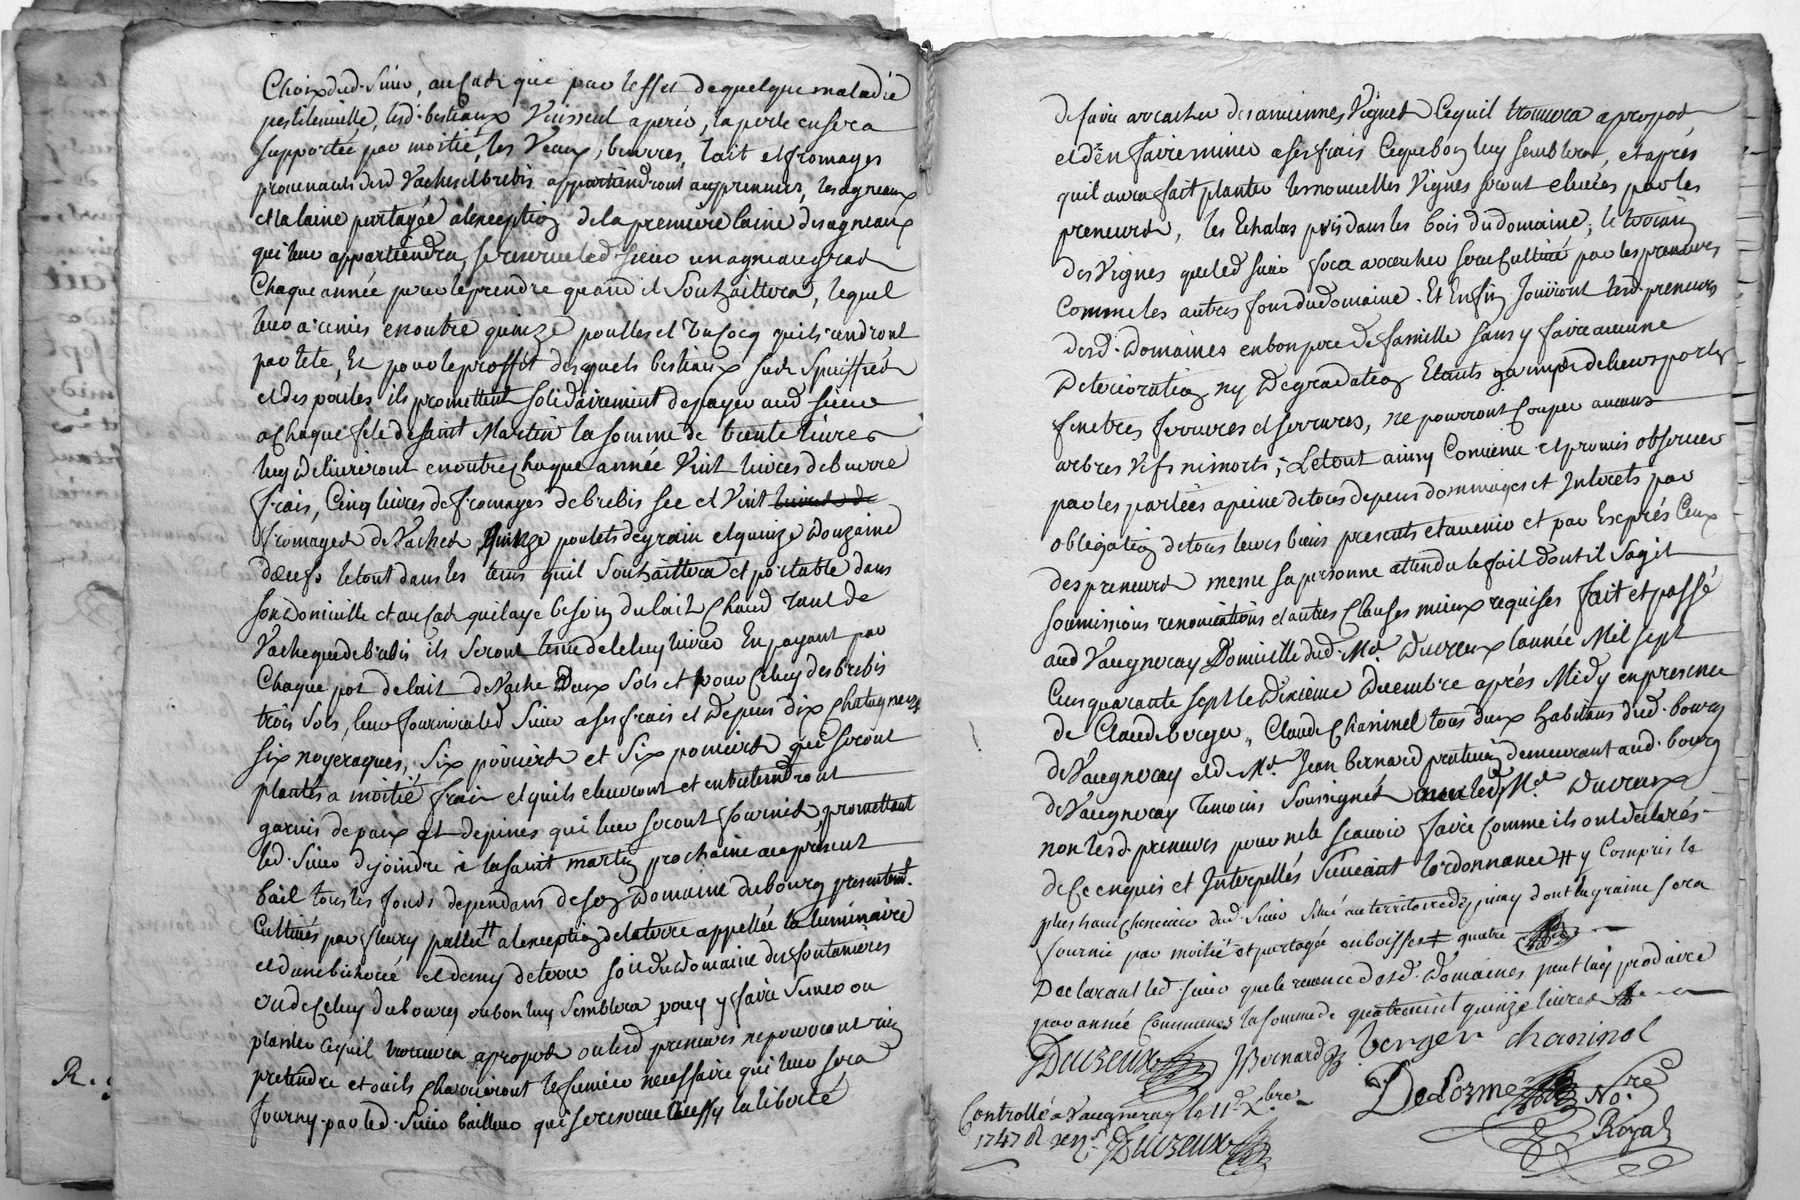 Choix dud. Sieur, au Cas que par leffet de quelque maladie
pestilentielle, lesd. bestiaux Vinssent a perir, la perte en sera
supportée par moitié, les Veaux, beurres, lait et fromages
provenants desd Vaches et brebis appartiendront aux preneurs, les agneaux
et la laine partagée a lexception de la premiere laine des agneaux
qui leur appartiendra, se reserve led. Sieur un agneau gras
Chaque année pour le prendre quand il Souhaittera, lequel
leur a remis en outre quinze poulles et Un Cocq quils rendront
par tete, Et pour le proffit desquels bestiaux sus Speciffiés
et des poules ils promettent solidairement de payer aud sieur
a Chaque fete de saint Martin la somme de trente livres
luy delivreront en outre Chaque année Vint livres de beurre
frais, Cinq livres de fromages de brebis sec et Vint livres de
fromages de Vaches quinze poulets de grain et quinze Douzaine
dœufs le tout dans les tems quil Souhaittera et portable dans
son Domicille et au Cas quil aye besoin du lait Chaud tant de
Vache que de brebis ils seront tenus de le luy livrer En payant par
Chaque pot de lait de Vache Deux Sols et pour Celuy des brebis
trois sols, leur fournira led Sieur a ses frais et Depens dix Chatagners
six noyeraques, six poiriers et six pomiers qui seront
plantés a moitié frais et quils eleveront et entretiendront
garnis de paux et depines qui leur seront fournis, promettant
led. Sieur de joindre a la saint martin prochaine au présent
bail tous les fonds dependans de son Domaine du bourg presentemt.
Cultivés par fleury pallut a lexception de la terre appellée la luminaire
et dune bicherée et demy de terre soit du Domaine des fontanieres
ou de Celuy du bourg ou bon luy Semblera pour y faire Semer ou
planter Ce quil trouvera apropos ou lesd preneurs ne pourront rien
pretendre et ou ils Charrieront le fumier necessaire qui leur sera
fourny par led. Sieur bailleur qui se reserve aussy la liberté
de faire arracher des anciennes Vignes Ce quil trouvera apropos
et den faire miner a ses frais Ce que bon luy semblera, et aprés
quil aura fait planter les nouvelles Vignes seront elevées par les
preneurs, les Echalas pris dans les bois du domaine, le terrain
des Vignes que led Sieur fera arracher sera Cultivé par les preneurs
Comme les autres fonds du domaine. Et Enfin Jouiront lesd. preneurs
desd. Domaines en bon pere de famille sans y faire aucune
Deterioration ny Degradation Etants garnis de leurs portes
fenetres ferrures et serrures, ne pourront Couper aucuns
arbres Vifs ni morts; Le tout ainsy Convenu et promis observer
par les parties a peine de tous depens dommages et Interets par
obligation de tous leurs biens presents et avenir et par Exprés Ceux
des preneurs meme sa personne attendu le fait dont il Sagit
soumissions renonciations et autres Clauses mieux requises fait et passé
aud Vaugneray Domicille dud. Md. Duvreux lannée Mil sept
Cens quarante sept le Dixieme Decembre aprés Midy en presence
de Claude berger, Claude Chaninel tous deux habitans dud. bourg
de Vaugneray et de Md. Jean bernard praticien demeurant aud. bourg
de Vaugneray temoins Soussignés avec led Md. Duvreux
non lesd. preneurs pour ne le scavoir faire Comme ils ont declarés
de Ce enquis et Interpellés Suivant lordonnance # y Compris le
plus haut Chenevier dud. Sieur situé au territoire depinay dont la graine sera
fournie par moitié et partagée
Declarant led. Sieur que le revenu desd. Domaines peut luy produire
par année Communes la somme de quatre cent quinze livres
Duvreux JBernard berger chaninel
Delorme No.re
Royal
Controllé a Vaugneray le 11e. Xbre
1747
Duvreux
R.